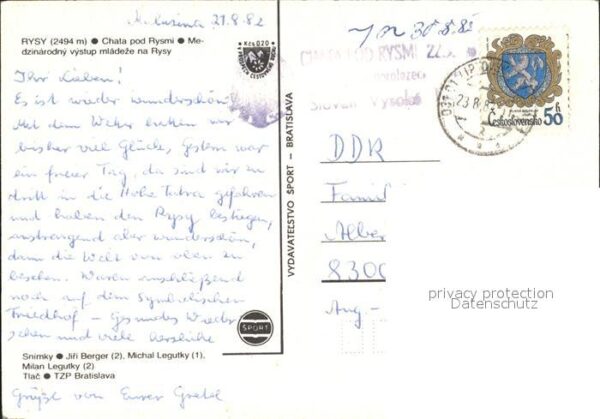 21.8.82
RYSY (2494 m) ● Chata pod Rysmi ● Me-
dzinárodný výstup mládeže na Rysy
Kčs 0,20
Ihr Lieben!
Es ist wieder wunderschön!
Mit dem Wetter hatten wir
bisher viel Glück, gestern war
ein freier Tag, da sind wir zu
dritt in die Hohe Tatra gefahren
und haben den Rysy bestiegen,
anstrengend aber wunderschön,
dann die Welt von oben zu
besehen. Waren anschließend
noch auf dem Symbolischen
Friedhof – Gesundes Wieder-
sehen und viele herzliche
Grüße von Eurer Gretel
Snímky ● Jiří Berger (2), Michal Legutky (1),
Milan Legutky (2)
Tlač ● TZP Bratislava
ŠPORT
VYDAVATEĽSTVO ŠPORT – BRATISLAVA
30.8.82
CHATA POD RYSMI 22
Vysoké
23.8.82
Československo 50 h
DDR
Famil
Alber
8300
privacy protection
Datenschutz